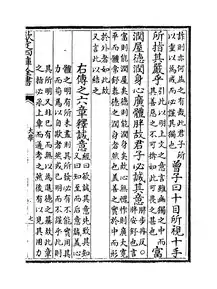 詐則亦何益之有哉此君子所
以重以為戒而必謹其獨也
曾子曰十目所視十手
所指其嚴乎
引此以明上文之意言雖幽獨之中而
其善惡之不可揜如此可畏之甚也
富
潤屋德潤身心廣體胖故君子必誠其意
胖步丹反
胖安舒也言
富則能潤屋矣德則能潤身矣故心無愧怍則廣大寬
平而體常舒泰德之潤身者然也蓋善之實於中而形
於外者如此故
又言此以結之
右傳之六章釋誠意
經曰欲誠其意先致其知
又曰知至而后意誠蓋心
體之明有所未盡則其所發必有不能實用其
力而苟焉以自欺者然或己明而不謹乎此則
其所明又非己有而無以為進德之基故此章
之指必承上章而通考之然後有以見其用力
欽定四庫全書
大學